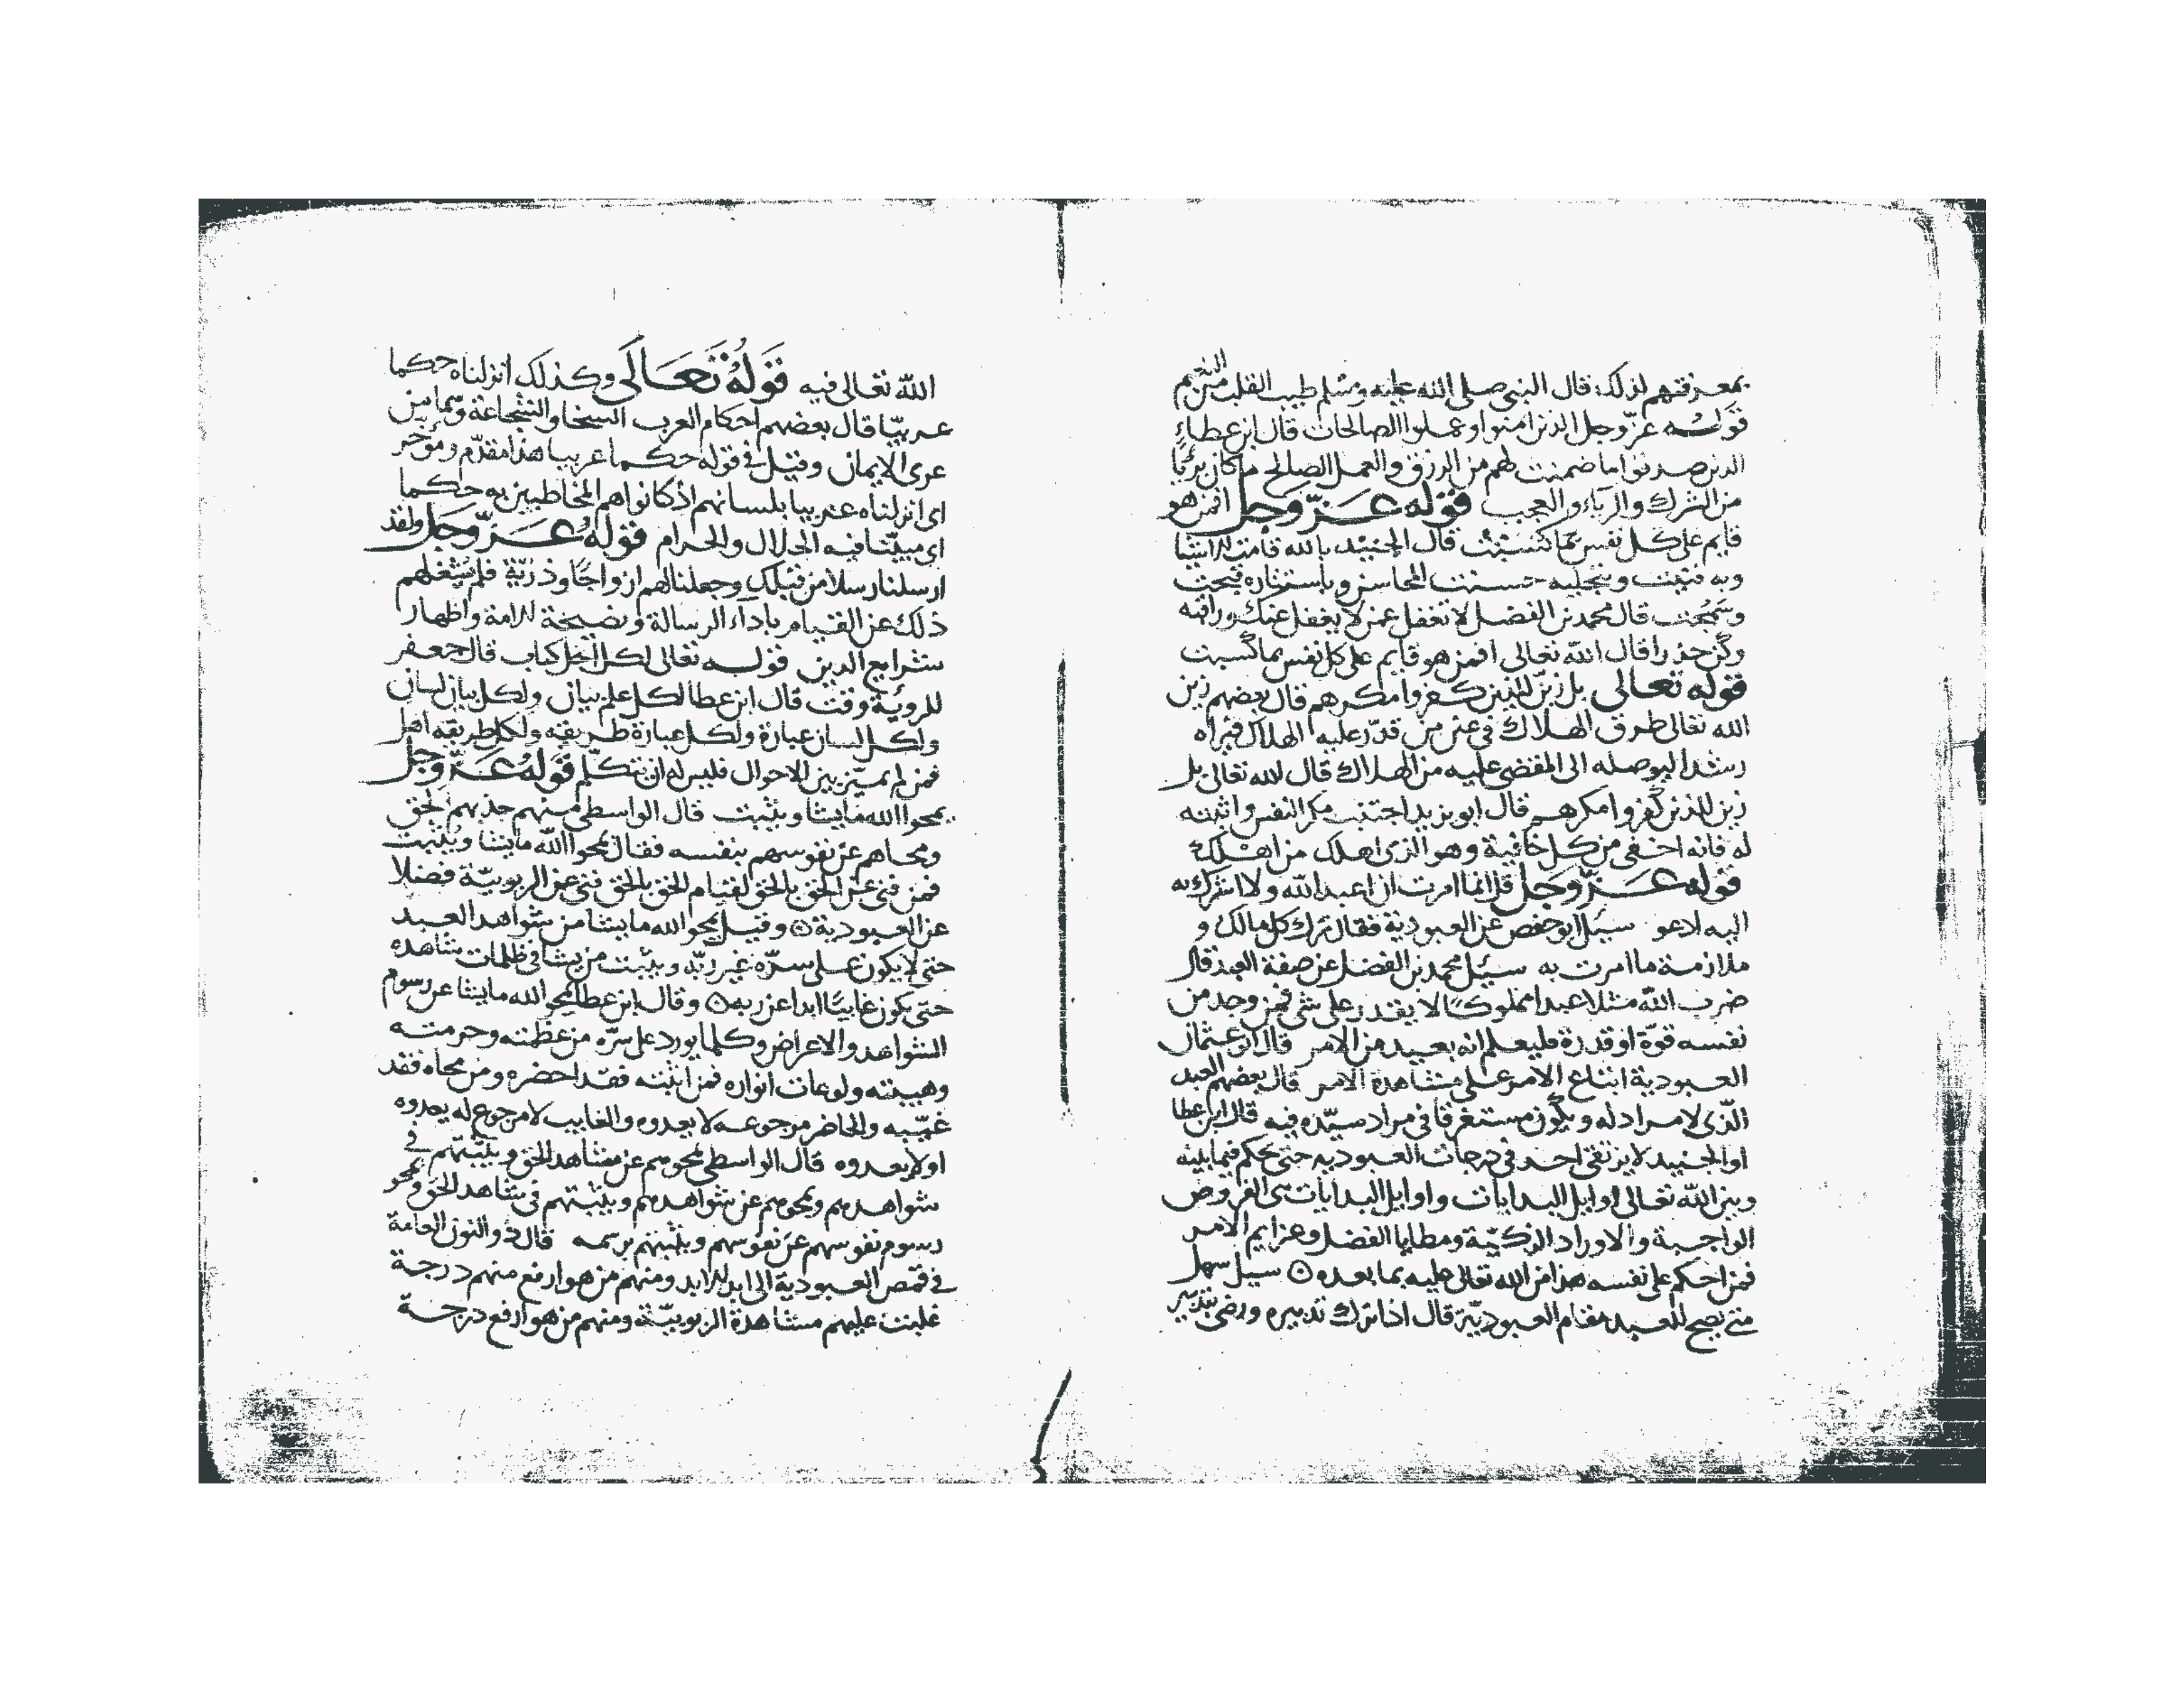 بمعرفتهم لذلك قال النبي صلى الله عليه وسلم طيب القلب من النعيم
قوله عزّ وجل الذين امنوا وعملوا الصالحات قال ابن عطاء
الذين صدقوا ما ضمنت لهم من الرزق والعمل الصالح ما كان بريّا
من الشرك والرياء والعجب قوله عزّ وجل افمن هو
قايم على كل نفس بما كسبت قال الجنيد بالله قامت الاشيا
وبه فنيت وبتجليه حسنت المحاسن وباستتاره قبحت
وسمجت قال محمد بن الفضل لا تغفل عمن لا يغفل عنك وراقبه
وكن حذرا قال الله تعالى افمن هو قايم على كل نفس بما كسبت
قوله تعالى بل زيّن للذين كفروا مكرهم قال بعضهم زين
الله تعالى طرق الهلاك في عين من قدّر عليه الهلاك فيراه
رشدا ليوصله الى المقضى عليه من الهلاك قال الله تعالى بل
زين للذين كفروا مكرهم قال ابو يزيد اجتنب مكر النفس وانتبه
له فانه اخفى من كل خافية وهو الذى اهلك من اهلك
قوله عزّ وجل قل انما امرت ان اعبد الله ولا اشرك به
اليه ادعو سيل ابو حفص عن العبودية فقال ترك كل مالك و
ملازمة ما امرت به سيل محمد بن الفضل عن صفة العبد قال
ضرب الله مثلا عبدا مملوكا لا يقدر على شي فمن وجد من
نفسه قوّة او قدرة فليعلم انه بعيد من الامر قال ابو عثمان
العبودية اتباع الامر على مشاهدة الامر قال بعضهم العبد
الذى لا مراد له ويكون مستغرقا في مراد سيّده فيه قال ابن عطا
او الجنيد لا يرتقى احد في درجات العبوديه حتى يحكم فيما بينه
وبين الله تعالى اوايل البدايات واوايل البدايات هى الفروض
الواجبة والاوراد الزكيّة ومطايا الفضل وعزايم الامر
فمن احكم على نفسه هذا من الله تعالى عليه بما بعده سيل سهل
متى يصح للعبد مقام العبوديّة قال اذا ترك تدبيره ورضى بتدبير
الله تعالى فيه قوله تعالى وكذلك انزلناه حكما
عربيّا قال بعضهم احكام العرب السخا والشجاعة وهما من
عرى الايمان وقيل في قوله حكما عربيا هذا مقدّم ومؤخر
اى انزلناه عربيا بلسانهم اذ كانوا هم المخاطبين به حكما
اى مبيّنا فيه الحلال والحرام قوله عزّ وجل ولقد
ارسلنا رسلا من قبلك وجعلنا لهم ازواجا وذريّة فلم يشغلهم
ذلك عن القيام باداء الرسالة ونصيحة الامة واظهار
شرايع الدين قوله تعالى لكل اجل كتاب قال جعفر
للروية وقت قال ابن عطا لكل علم بيان ولكل بيان لسان
ولكل لسان عبارة ولكل عبارة طريقه ولكل طريقه اهل
فمن لم يميّز بين الاحوال فليس له ان يتكلّم قوله عزّ وجل
يمحوا الله ما يشا ويثبت قال الواسطى منهم جذبهم الحق
ومحاهم عن نفوسهم بنفسه فقال يمحوا الله ما يشا ويثبت
فمن فنى عن الحق بالحق لقيام الحق بالحق فنى عن الربوبيّة فضلا
عن العبودية وقيل يمحوا الله ما يشا من شواهد العبد
حتى لا يكون على سرّه غير ربّه ويثبت من يشا في ظلمات شاهده
حتى يكون غايبًا ابدا عن ربه وقال ابن عطا يمحوا الله ما يشا عن رسوم
الشواهد والاعراض وكلما يورد على سرّه من عظمته وحرمته
وهيبته ولوعات انواره فمن اثبته فقد احضره ومن محاه فقد
غيّبه والحاضر مرجوعه لا يعدوه والغايب لا مرجوع له يعدوه
او لا يعدوه قال الواسطى يمحوهم عن مشاهد الحق ويثبتهم في
شواهدهم ويمحوهم عن شواهدهم ويثبتهم في شاهد الحق ويمحو
رسوم نفوسهم عن نفوسهم ويثبتهم برسمه قال ذو النون العامة
في قمص العبودية الى ابد الابد ومنهم من هو ارفع منهم درجة
غلبت عليهم مشاهدة الربوبيّة ومنهم من هو ارفع درجة